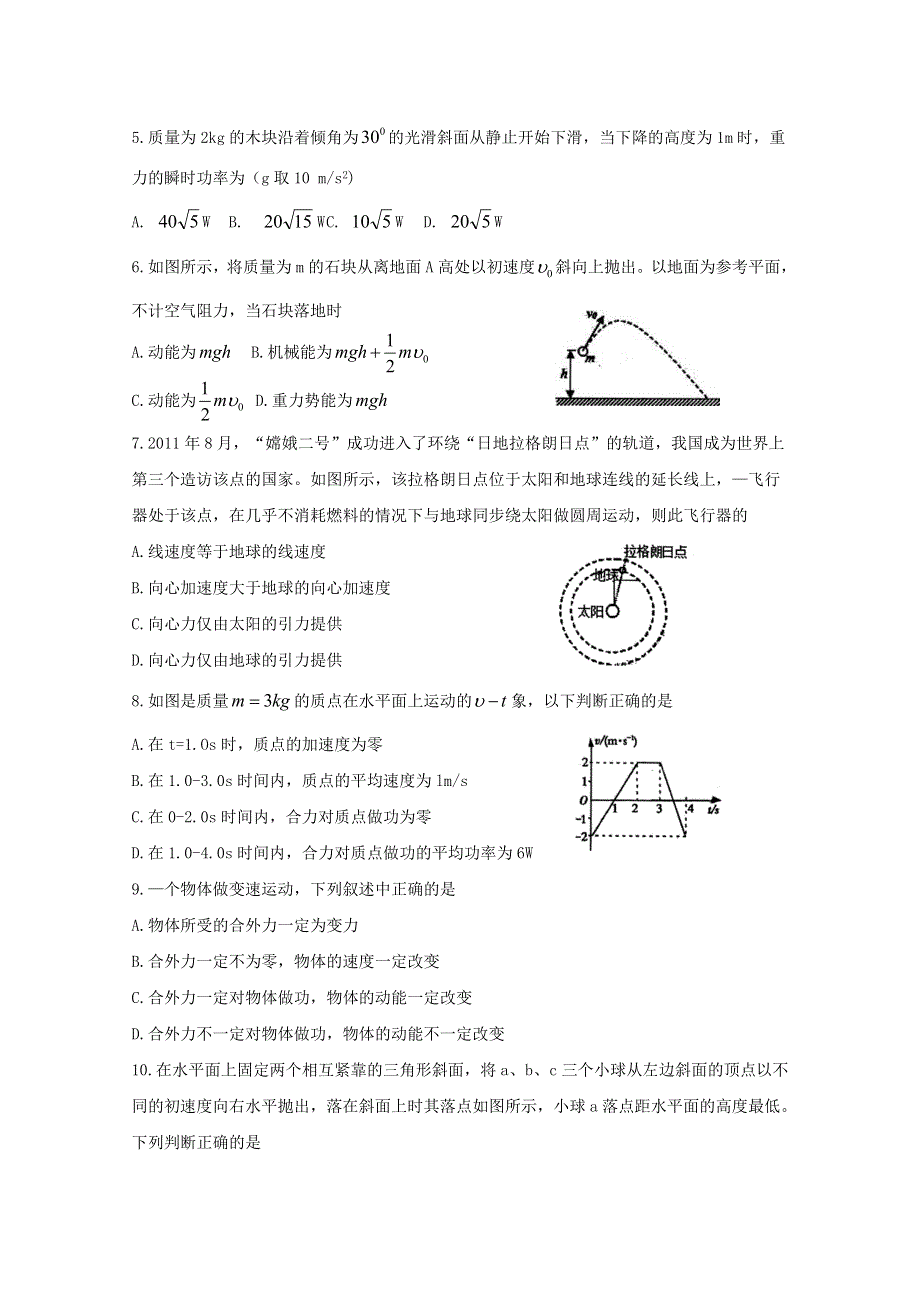 5.质量为 2kg 的木块沿着倾角为30⁰的光滑斜面从静止开始下滑，当下降的高度为 1m 时，重
力的瞬时功率为（g 取 10 m/s²)
A. 40√5 W B. 20√15 WC. 10√5 W D. 20√5 W
6.如图所示，将质量为 m 的石块从离地面 A 高处以初速度υ₀斜向上抛出。以地面为参考平面，
不计空气阻力，当石块落地时
A.动能为mgh B.机械能为mgh+1/2mυ₀
C.动能为1/2mυ₀ D.重力势能为mgh
v₀
m
h
7.2011 年 8 月，“嫦娥二号”成功进入了环绕“日地拉格朗日点”的轨道，我国成为世界上
第三个造访该点的国家。如图所示，该拉格朗日点位于太阳和地球连线的延长线上，—飞行
器处于该点，在几乎不消耗燃料的情况下与地球同步绕太阳做圆周运动，则此飞行器的
A.线速度等于地球的线速度
B.向心加速度大于地球的向心加速度
C.向心力仅由太阳的引力提供
D.向心力仅由地球的引力提供
拉格朗日点
地球
太阳
8.如图是质量m=3kg的质点在水平面上运动的υ−t象，以下判断正确的是
A.在 t=1.Os 时，质点的加速度为零
B.在 1.0-3.0s 时间内，质点的平均速度为 lm/s
C.在 0-2.0s 时间内，合力对质点做功为零
D.在 1.0-4.0s 时间内，合力对质点做功的平均功率为 6W
v/(m·s⁻¹)
2
1
O
-1
-2
1 2 3 4 t/s
9.—个物体做变速运动，下列叙述中正确的是
A.物体所受的合外力一定为变力
B.合外力一定不为零，物体的速度一定改变
C.合外力一定对物体做功，物体的动能一定改变
D.合外力不一定对物体做功，物体的动能不一定改变
10.在水平面上固定两个相互紧靠的三角形斜面，将 a、b、c 三个小球从左边斜面的顶点以不
同的初速度向右水平抛出，落在斜面上时其落点如图所示，小球 a 落点距水平面的高度最低。
下列判断正确的是